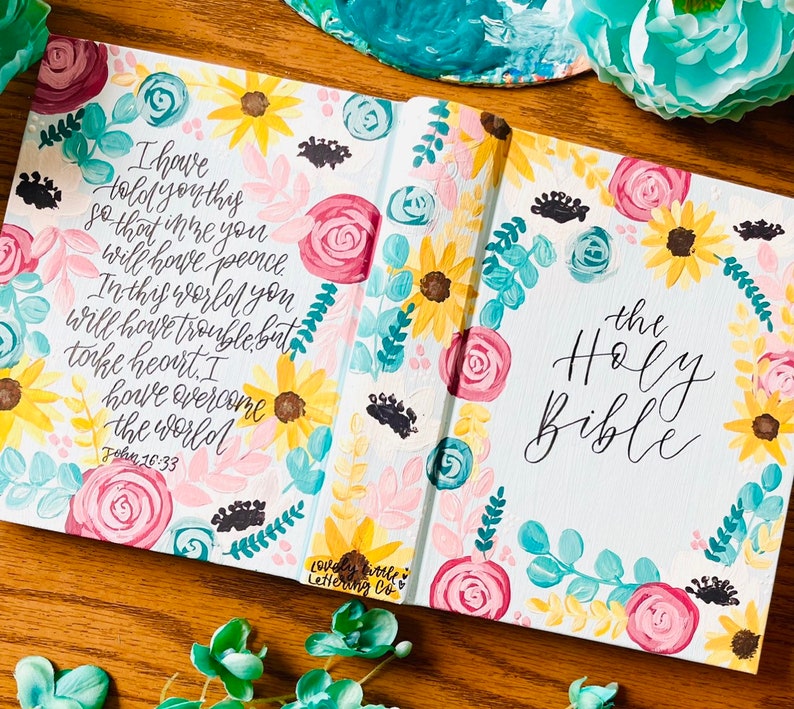 I have
told you this
so that in me you
will have peace.
In this world you
will have trouble, but
take heart, I
have overcome
the world
John 16:33
Lovely Little
Lettering Co
the
Holy
Bible